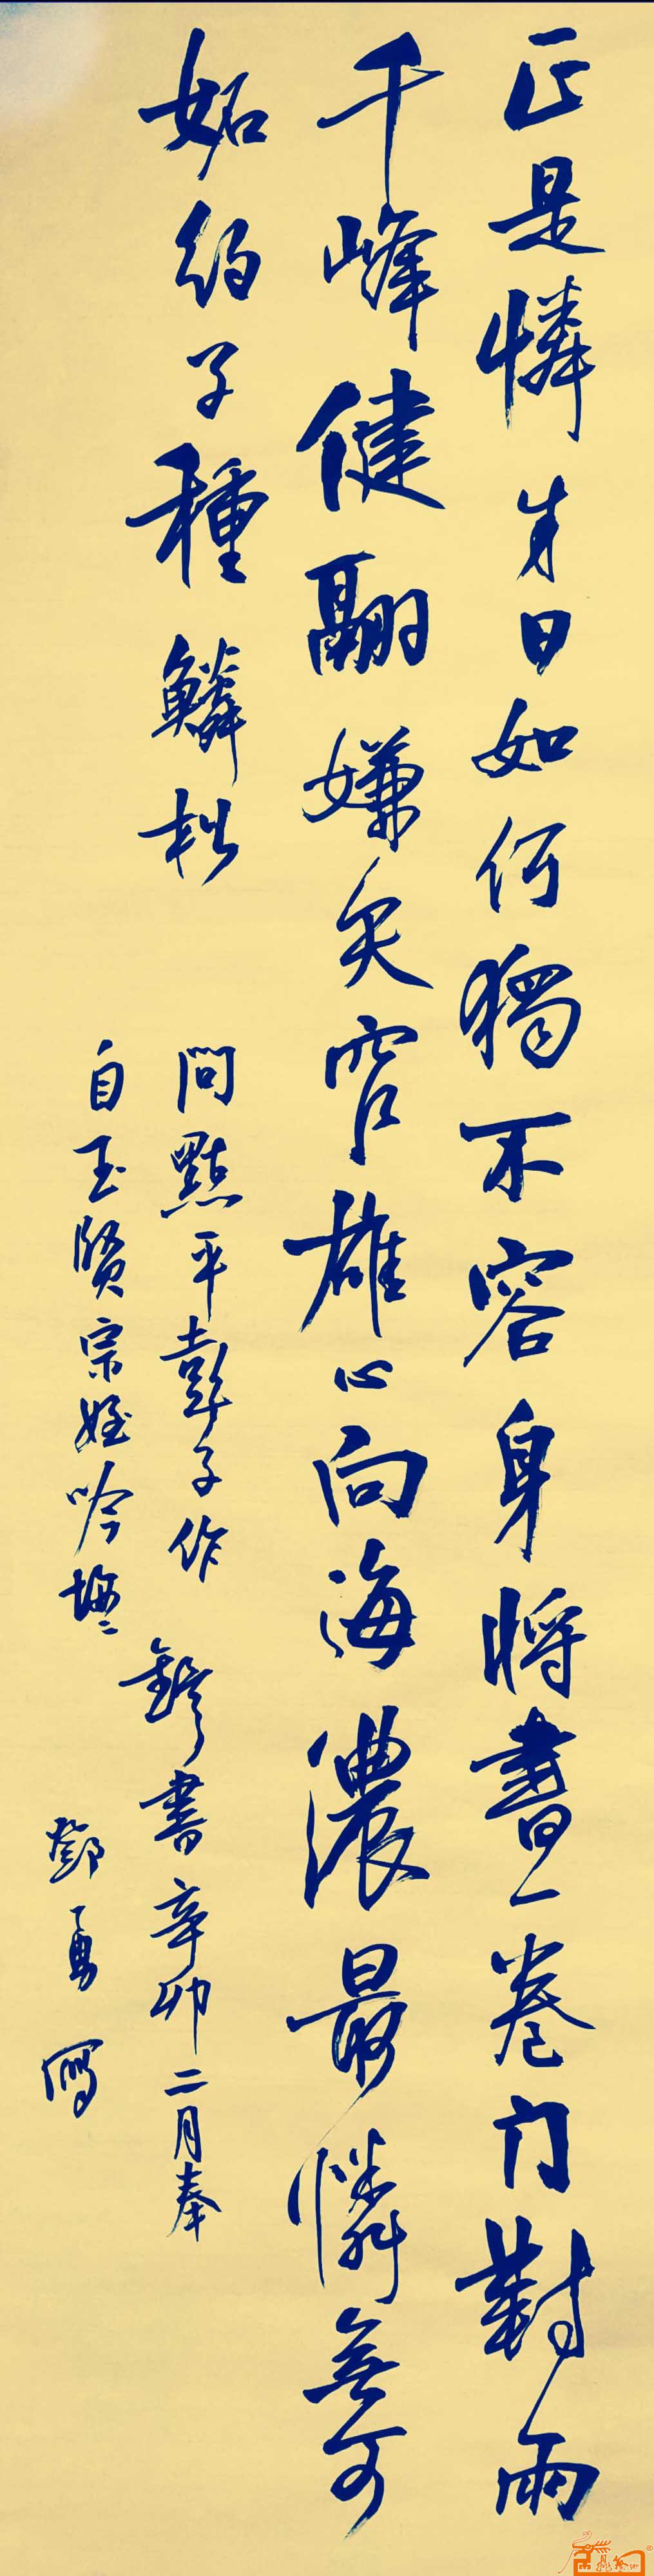 正是憐身日如何獨不容身將書一卷门對雨
千峰健翮嫌矢窄雄心向海濃最憐無可
如約子種鱗松
問點平彭子作
書辛卯二月奉
自玉賢宗姪吟壇
鄧勇寫